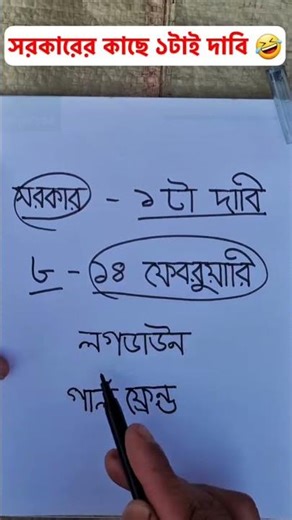 সরকারের কাছে ১টাই দাবি 🤣
সরকার - ১ টা দাবি
৮ - ১৪ ফেবরুয়ারি
লগডাউন
গার্ল ফ্রেন্ড